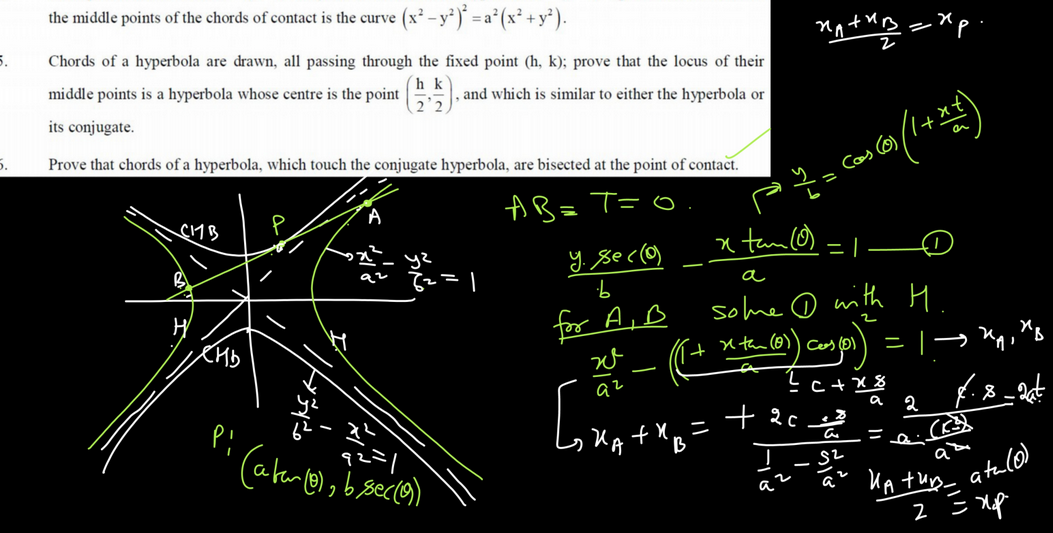 the middle points of the chords of contact is the curve (x² – y²)² = a² (x² + y²).
5. Chords of a hyperbola are drawn, all passing through the fixed point (h, k); prove that the locus of their
middle points is a hyperbola whose centre is the point (h/2, k/2), and which is similar to either the hyperbola or
its conjugate.
6. Prove that chords of a hyperbola, which touch the conjugate hyperbola, are bisected at the point of contact.
(x_A + x_B)/2 = x_P.
y/b = cos(θ) (1 + xt/a)
AB ≡ T = 0.
y sec(θ)/b – x tan(θ)/a = 1 — ①
for A, B solve ① with H.
x²/a² – ((1 + x tan(θ)/a) cos(θ))² = 1 → x_A, x_B
c + x s/a
x_A + x_B = + 2c s/a / (1/a² – s²/a²) = 2 c · s / (a · (c²)/a²) = 2at.
(x_A + x_B)/2 = a tan(θ)
= x_P
CHB
P
A
x²/a² – y²/b² = 1
B
H
H
CHb
y²/b² – x²/a² = 1
P: (a tan(θ), b sec(θ))